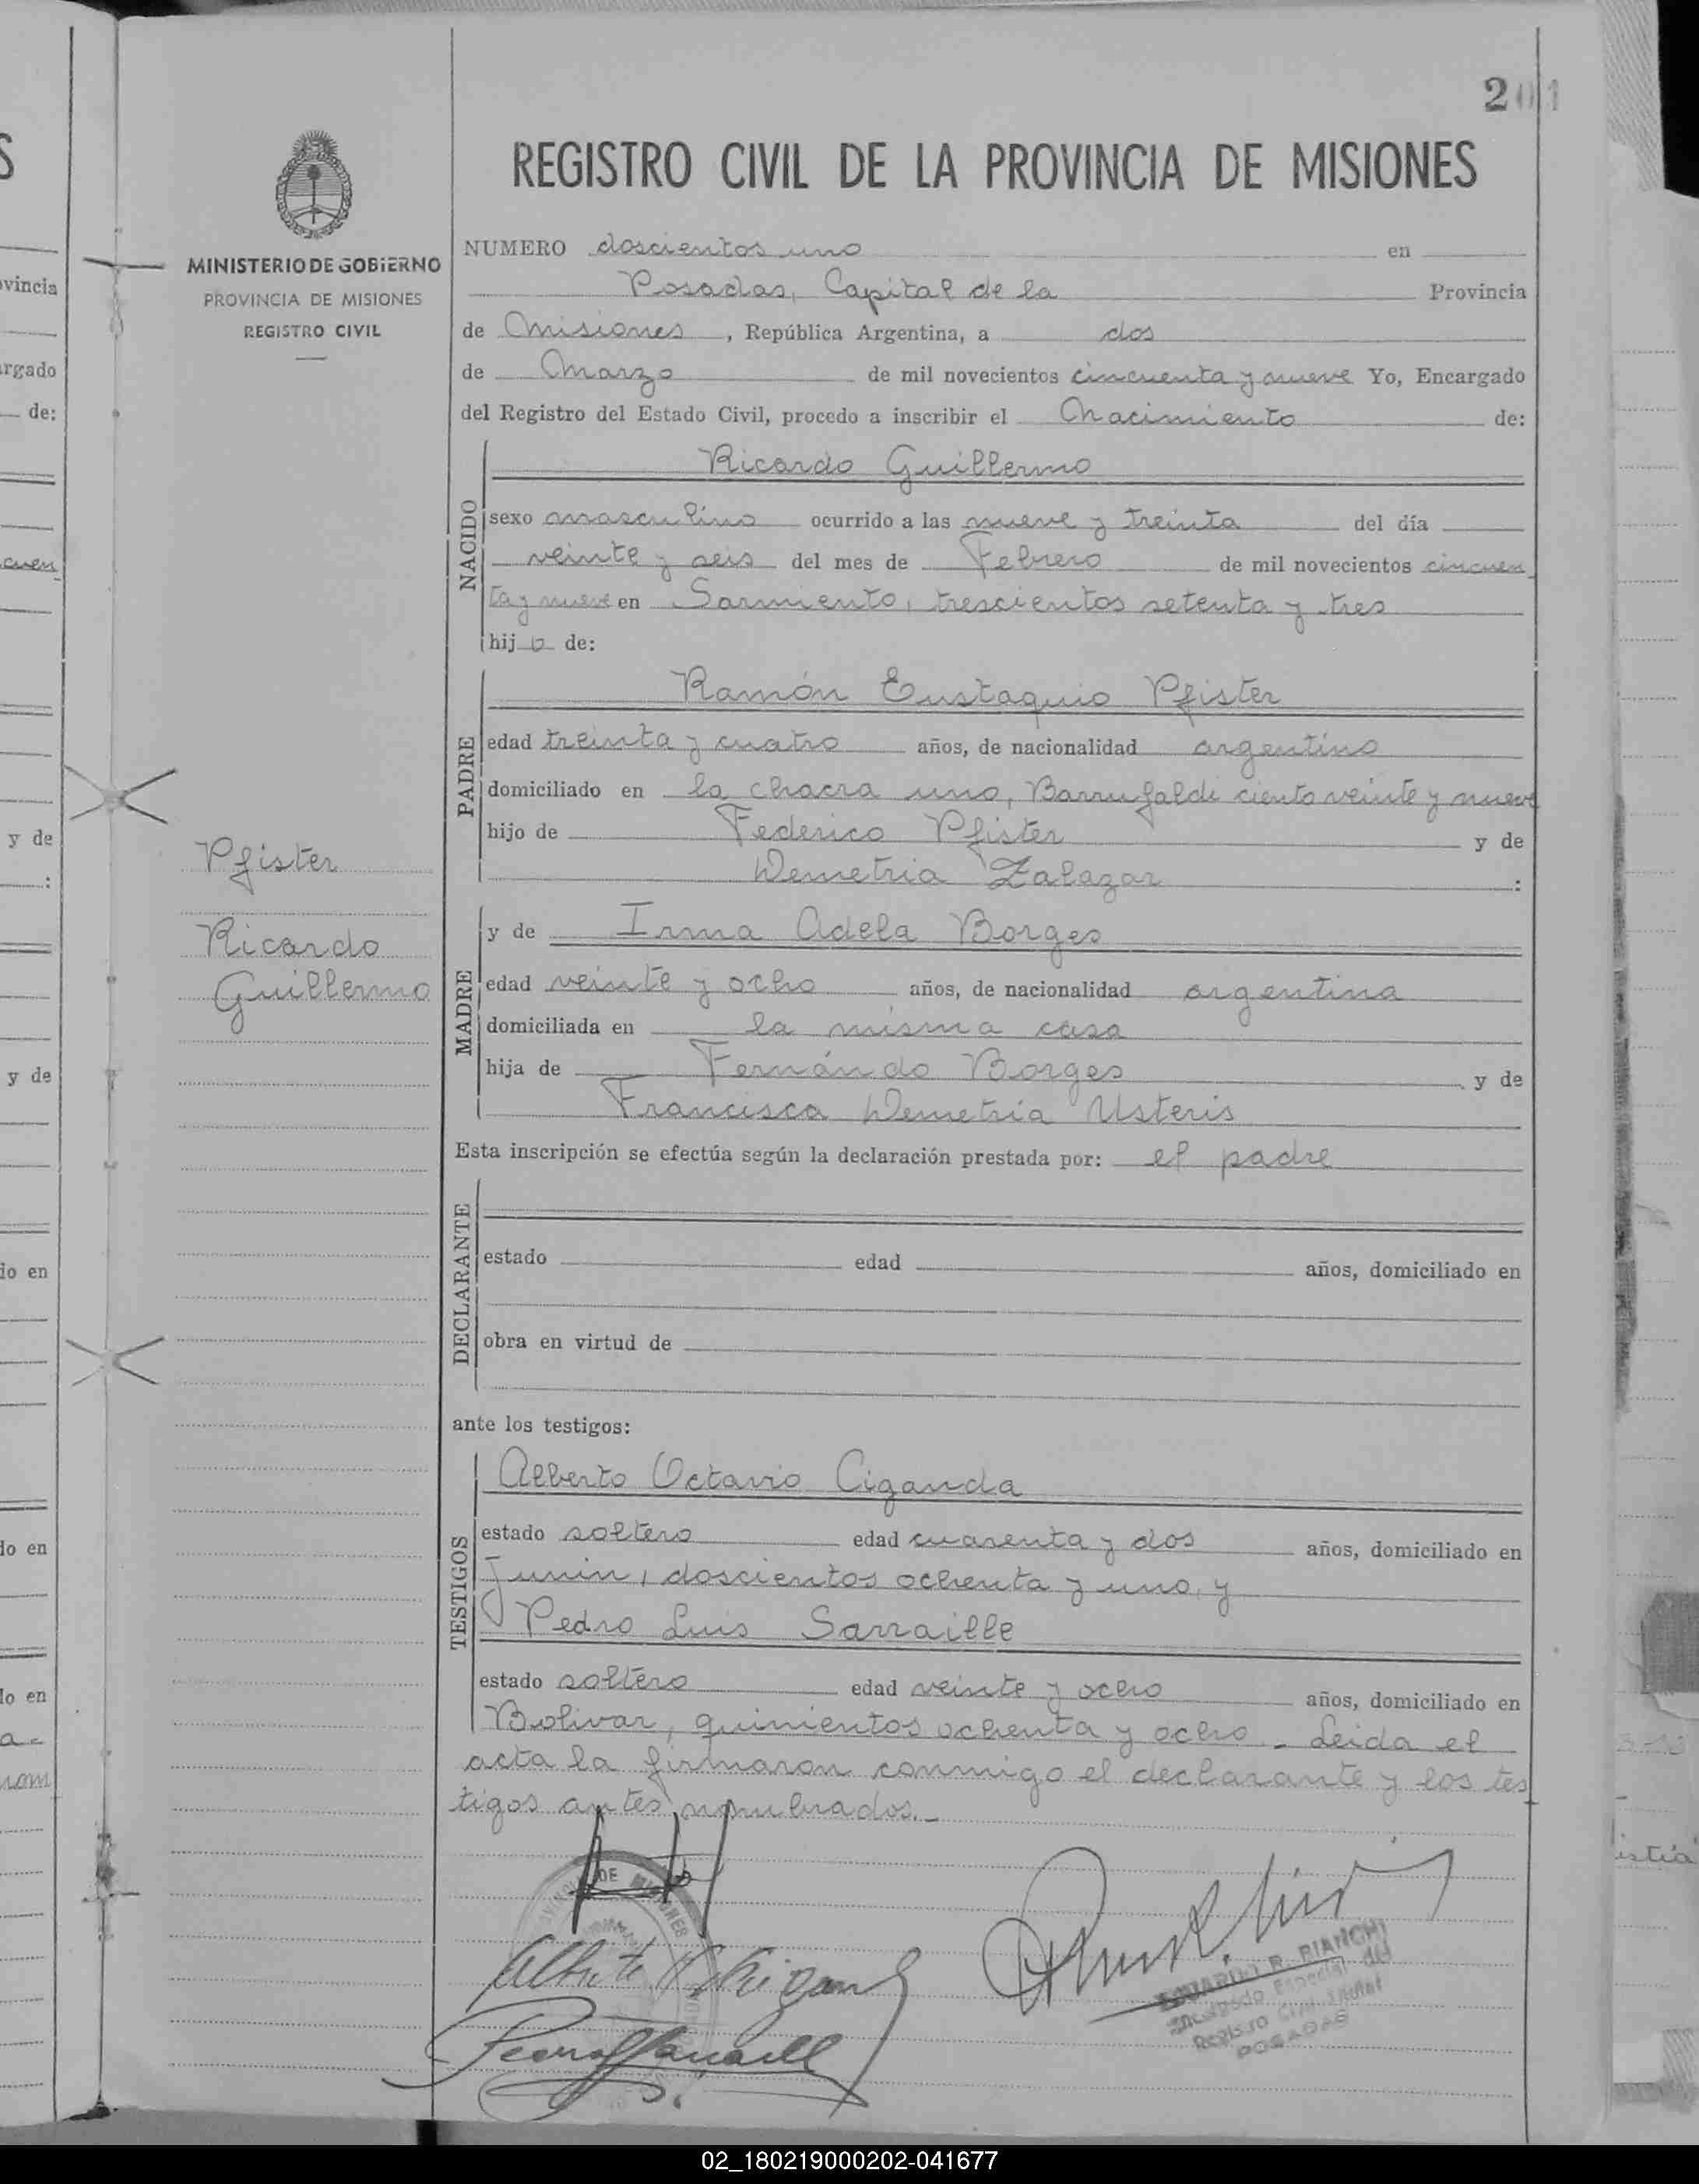 201
REGISTRO CIVIL DE LA PROVINCIA DE MISIONES
MINISTERIO DE GOBIERNO
PROVINCIA DE MISIONES
REGISTRO CIVIL
NUMERO doscientos uno en
Posadas, Capital de la Provincia
de Misiones, República Argentina, a dos
de Marzo de mil novecientos cincuenta y nueve Yo, Encargado
del Registro del Estado Civil, procedo a inscribir el Nacimiento de:
NACIDO
Ricardo Guillermo
sexo masculino ocurrido a las nueve y treinta del día
veinte y seis del mes de Febrero de mil novecientos cincuen
ta y nueve en Sarmiento, trescientos setenta y tres
hijo de:
PADRE
Ramón Eustaquio Pfister
edad treinta y cuatro años, de nacionalidad argentino
domiciliado en la chacra uno, Barrufaldi ciento veinte y nueve
hijo de Federico Pfister y de
Demetria Zalazar :
Pfister
Ricardo
Guillermo
MADRE
y de Irma Adela Borges
edad veinte y ocho años, de nacionalidad argentina
domiciliada en la misma casa
hija de Fernándo Borges y de
Francisca Demetria Usteris
Esta inscripción se efectúa según la declaración prestada por: el padre
DECLARANTE
estado edad años, domiciliado en
obra en virtud de
ante los testigos:
TESTIGOS
Alberto Octavio Ciganda
estado soltero edad cuarenta y dos años, domiciliado en
Junin, doscientos ochenta y uno, y
Pedro Luis Sarraille
estado soltero edad veinte y ocho años, domiciliado en
Bolivar, quinientos ochenta y ocho.- Leida el
acta la firmaron conmigo el declarante y los tes
tigos antes nombrados.-
EDUARDO R. BIANCHI
Encargado Especial del
Registro Civil
POSADAS
02_180219000202-041677